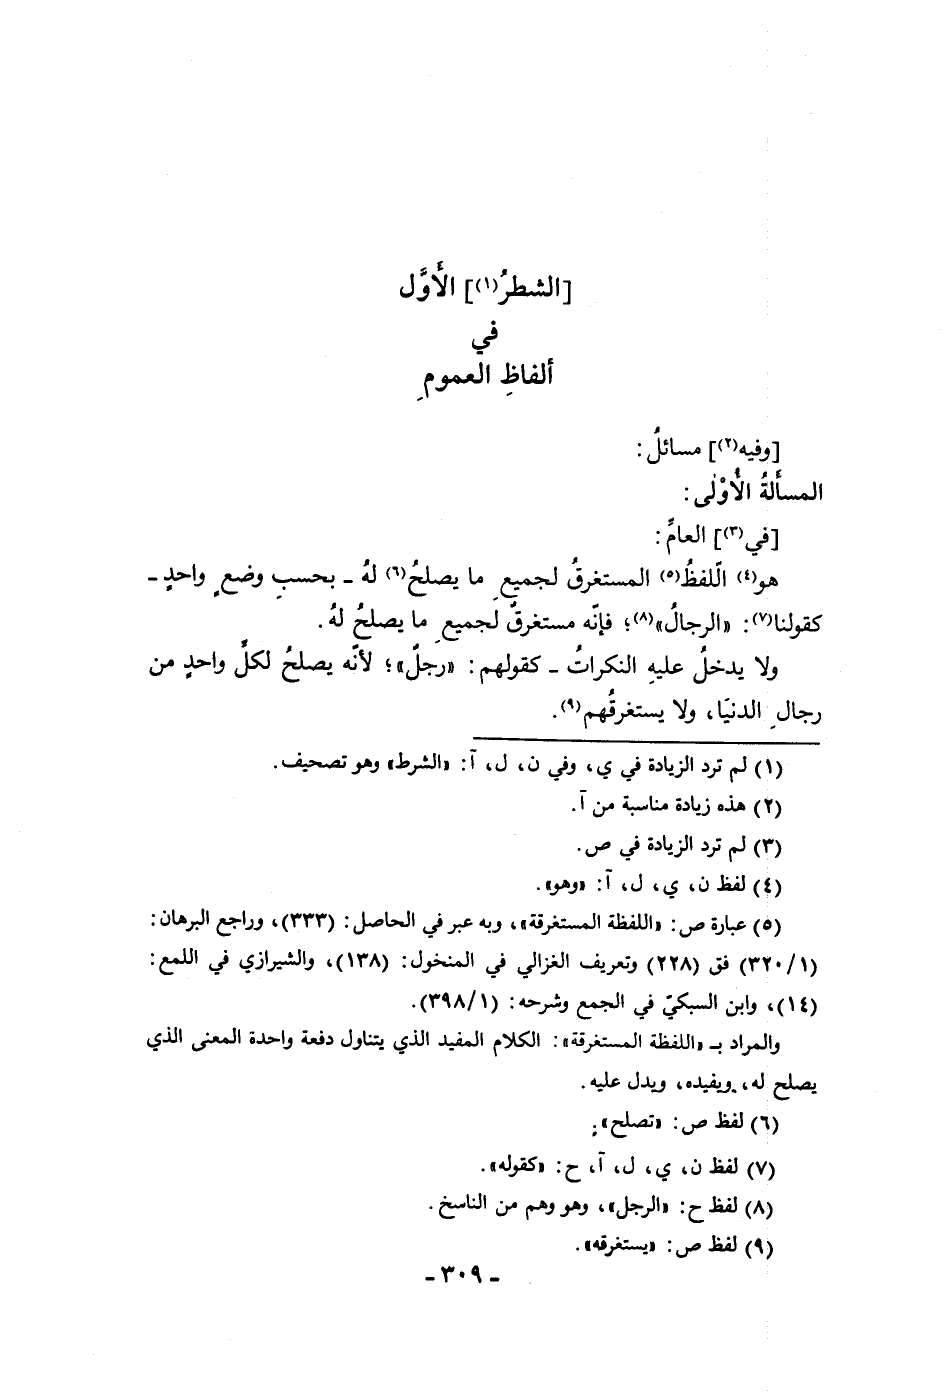 [الشطرُ(١)] الأَوَّل
في
ألفاظِ العمومِ
[وفيه(٢)] مسائلُ :
المسأَلةُ الأُوْلٰى :
[في(٣)] العامِّ :
هو(٤) الّلفظُ(٥) المستغرقُ لجميعِ ما يصلحُ(٦) لهُ ـ بحسبِ وضعٍ واحدٍ ـ
كقولنا(٧): «الرجالُ»(٨)؛ فإنّه مستغرقٌ لجميعِ ما يصلحُ لهُ .
ولا يدخلُ عليهِ النكراتُ ـ كقولهم : «رجلٌ»؛ لأنّه يصلحُ لكلِّ واحدٍ من
رجالِ الدنيَا، ولا يستغرقُهم(٩).
(١) لم ترد الزيادة في ي، وفي ن، ل، آ: «الشرط» وهو تصحيف.
(٢) هذه زيادة مناسبة من آ.
(٣) لم ترد الزيادة في ص.
(٤) لفظ ن، ي، ل، آ: «وهو».
(٥) عبارة ص: «اللفظة المستغرقة»، وبه عبر في الحاصل: (٣٣٣)، وراجع البرهان:
(٣٢٠/١) فق (٢٢٨) وتعريف الغزالي في المنخول: (١٣٨)، والشيرازي في اللمع:
(١٤)، وابن السبكيّ في الجمع وشرحه: (٣٩٨/١).
والمراد بـ «اللفظة المستغرقة»: الكلام المفيد الذي يتناول دفعة واحدة المعنى الذي
يصلح له، ويفيده، ويدل عليه.
(٦) لفظ ص: «تصلح».
(٧) لفظ ن، ي، ل، آ، ح: «كقوله».
(٨) لفظ ح: «الرجل»، وهو وهم من الناسخ.
(٩) لفظ ص: «يستغرقه».
- ٣٠٩ -